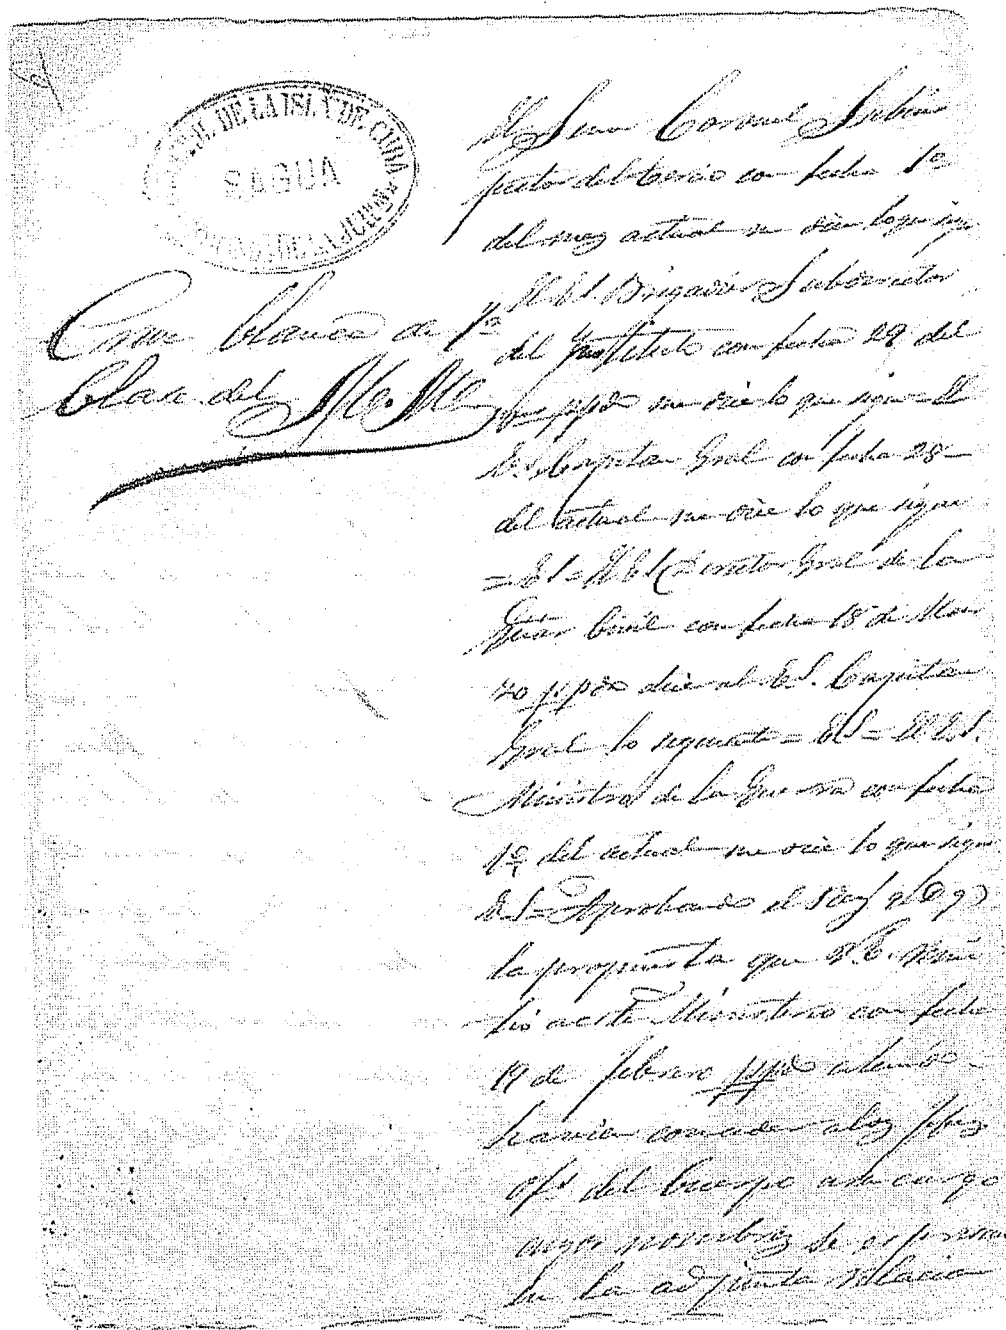 DE LA ISLA DE CUBA
SAGUA
Cruz blanca de 1ª
clase del M. M.
El Señor Coronel Subins
pector del tercio con fecha 1º
del mes actual me dice lo que sigue
El E. S. Brigadier Subdirector
del Instituto con fecha 29 del
mes ppdo me dice lo que sigue = El
E. S. Capitan Gral con fecha 28
del actual me dice lo que sigue
= E S = El E S Director Gral de la
Guar Civil con fecha 18 de Mar
zo ppdo dice al E S. Capitan
Gral lo siguiente = E S = El E. S.
Ministro de la Guerra con fecha
1º del actual me dice lo que sigue
E S = Aprobando el
la propuesta que V. E. remi
tió a este Ministerio con fecha
19 de febrero ppdo
conceder a los Jefes
ofs del Cuerpo a su cargo
cuyos nombres se expresan
en la adjunta relacion